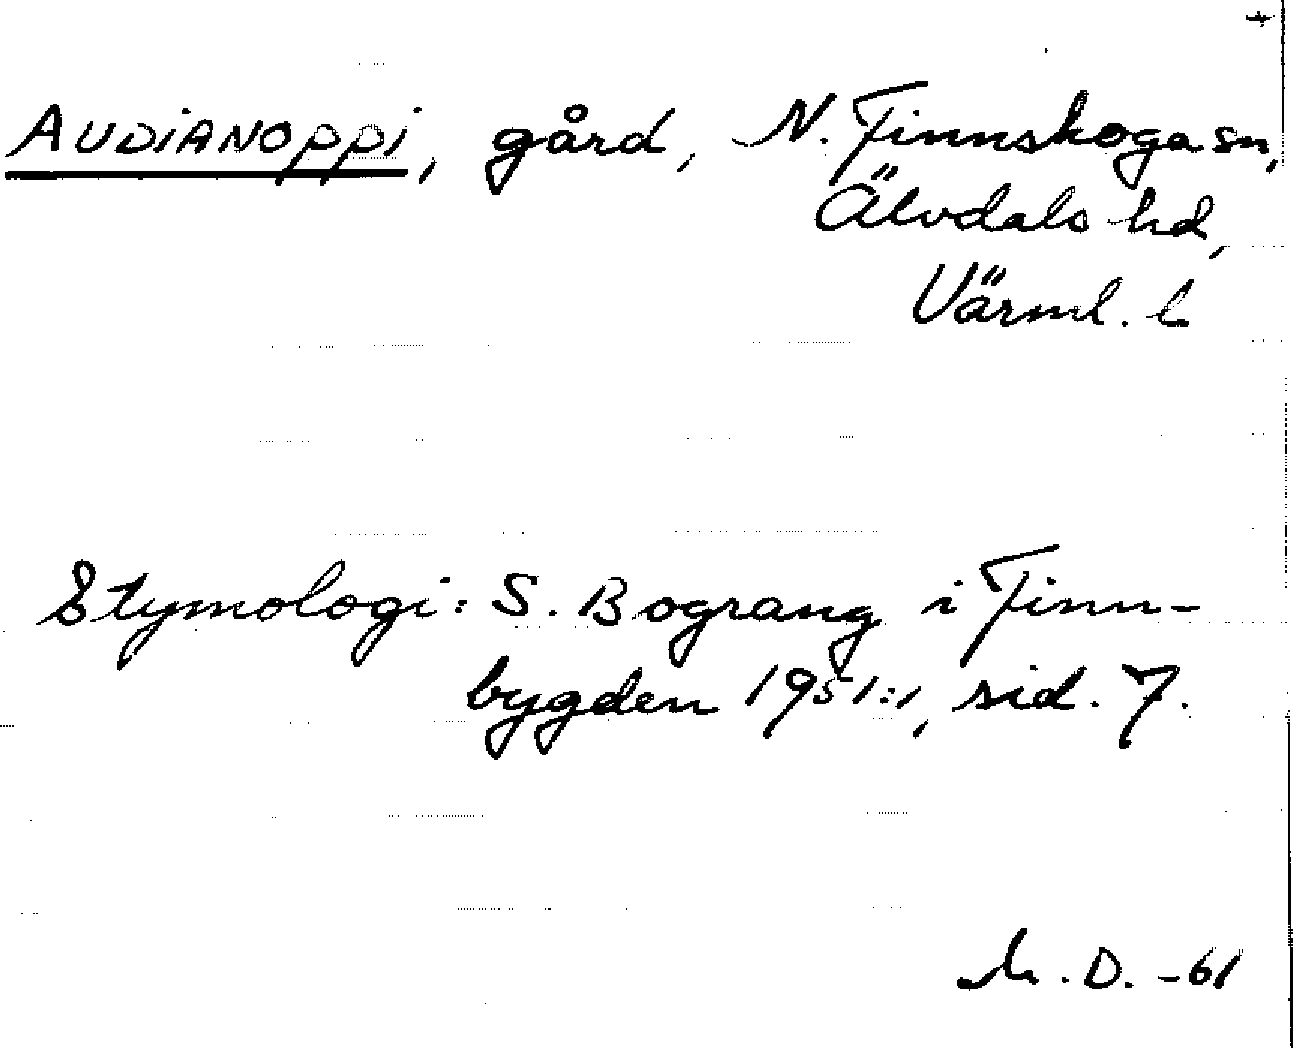 AUDIANOPPI, gård, N. Finnskoga sn,
Älvdals hd,
Värml. l.
Etymologi: S. Bograng i Finn-
bygden 1951:1, sid. 7.
M. D. -61